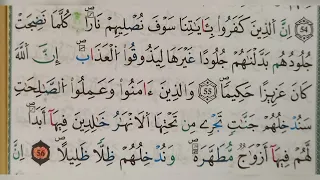 ٥٤ إِنَّ ٱلَّذِينَ كَفَرُوا۟ بِـَٔايَـٰتِنَا سَوْفَ نُصْلِيهِمْ نَارًا ۖ كُلَّمَا نَضِجَتْ
جُلُودُهُم بَدَّلْنَـٰهُمْ جُلُودًا غَيْرَهَا لِيَذُوقُوا۟ ٱلْعَذَابَ ۗ إِنَّ ٱللَّهَ
كَانَ عَزِيزًا حَكِيمًا ٥٥ وَٱلَّذِينَ ءَامَنُوا۟ وَعَمِلُوا۟ ٱلصَّـٰلِحَـٰتِ
سَنُدْخِلُهُمْ جَنَّـٰتٍ تَجْرِى مِن تَحْتِهَا ٱلْأَنْهَـٰرُ خَـٰلِدِينَ فِيهَآ أَبَدًا ۖ
لَّهُمْ فِيهَآ أَزْوَٰجٌ مُّطَهَّرَةٌ ۖ وَنُدْخِلُهُمْ ظِلًّا ظَلِيلًا ٥٦ إِنَّ